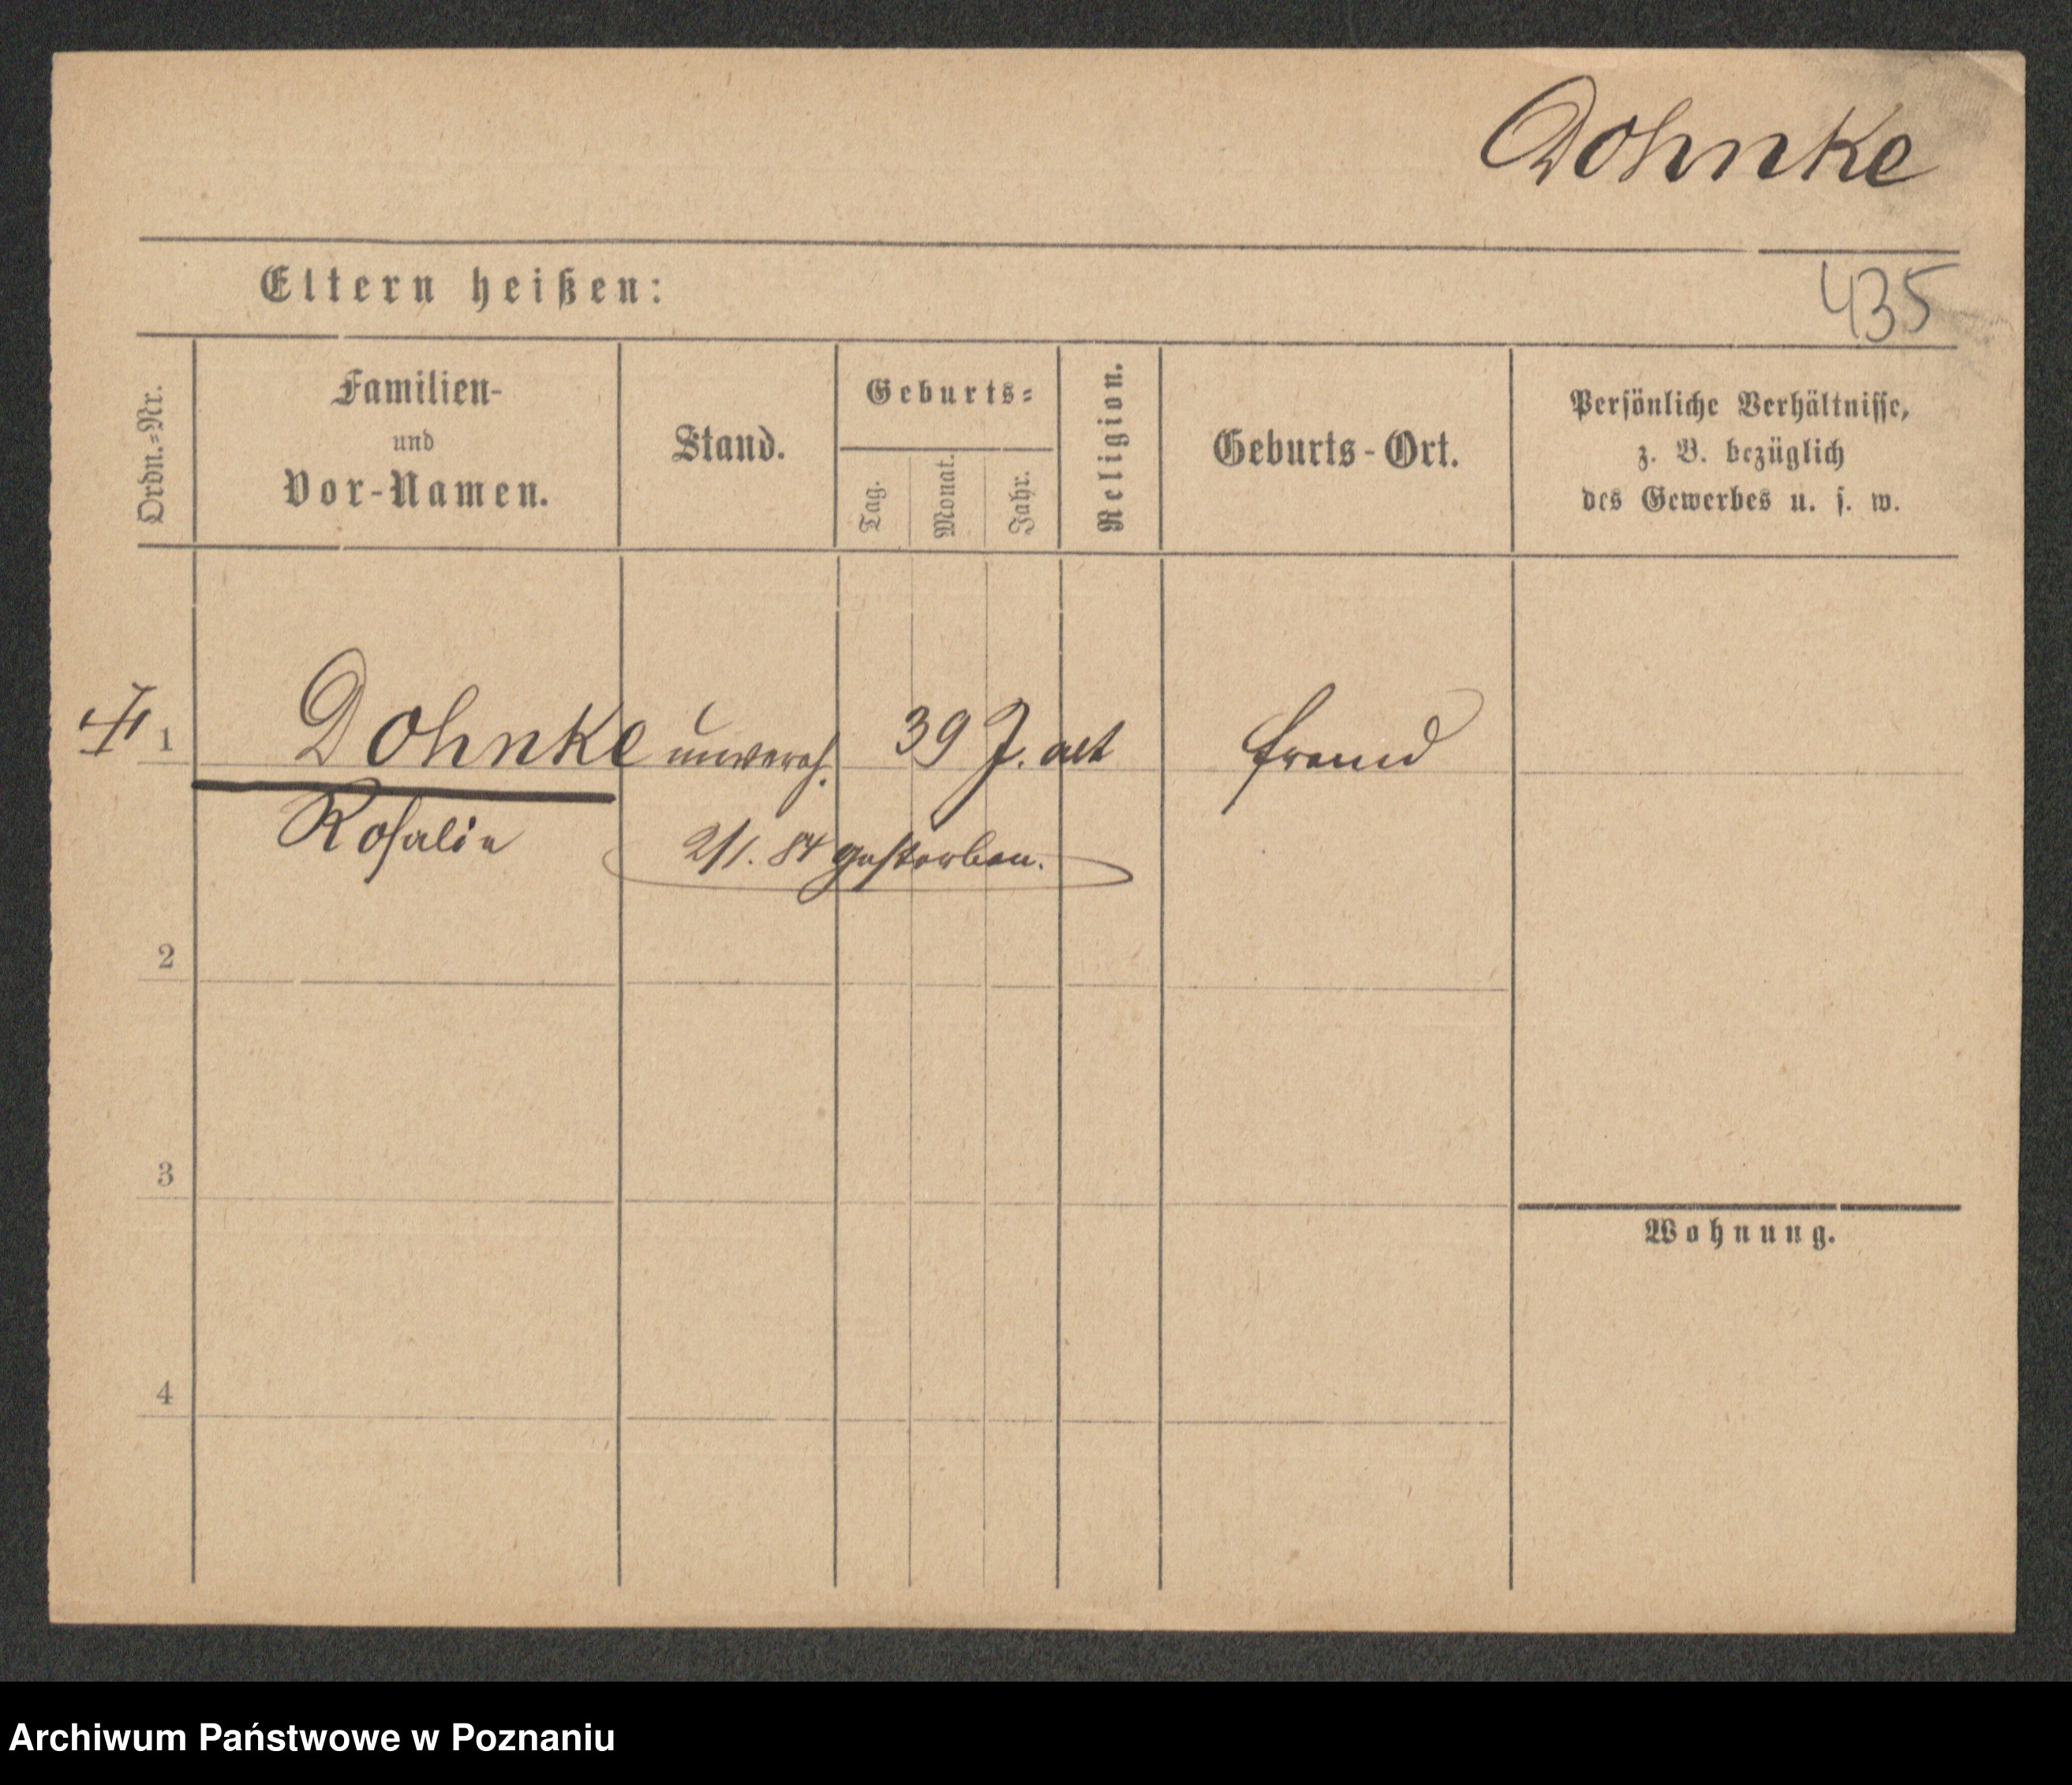 Dohnke
Eltern heißen:
435
Ordn.=Nr.
Familien-
und
Vor-Namen.
Stand.
Geburts=
Tag.
Monat.
Jahr.
Religion.
Geburts-Ort.
Persönliche Verhältnisse,
z. B. bezüglich
des Gewerbes u. s. w.
1 Dohnke unvereh. 39 J. alt fremd
Rosalie 2/1. 84 gestorben.
2
3
Wohnung.
4
Archiwum Państwowe w Poznaniu